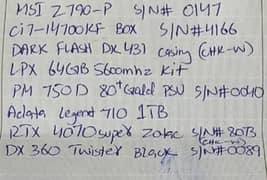 MSI Z790-P S/N# 0147
Ci7-14700KF BOX S/N#4166
DARK FLASH DX 431 casing (CHK-W)
LPX 64GB 5600mhz Kit
PM 750D 80+ Gold PSU S/N#0040
Adata Legend 710 1TB
RTX 4070 super Zotac S/N# 8073
(CHK-W)
DX 360 Twister Black S/N#0089